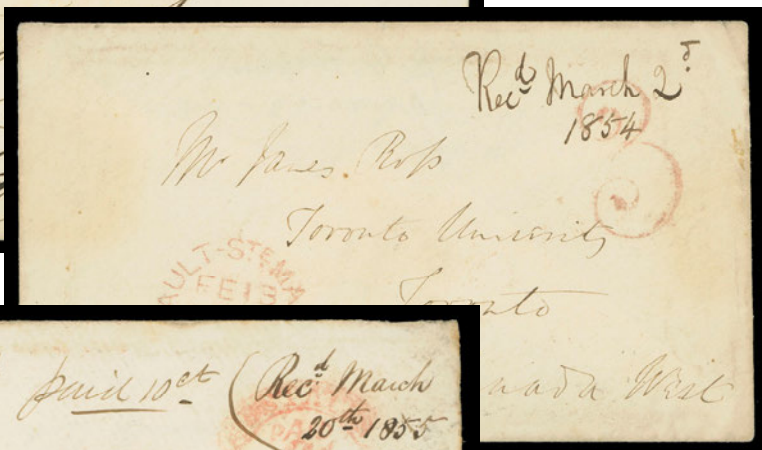 Rec.d March 2.d
1854
3
Mr James Ross
Toronto University
Toronto
nada West
AULT-STE MA
FE 13
paid 10ct
Rec.d March
20th 1855
PA